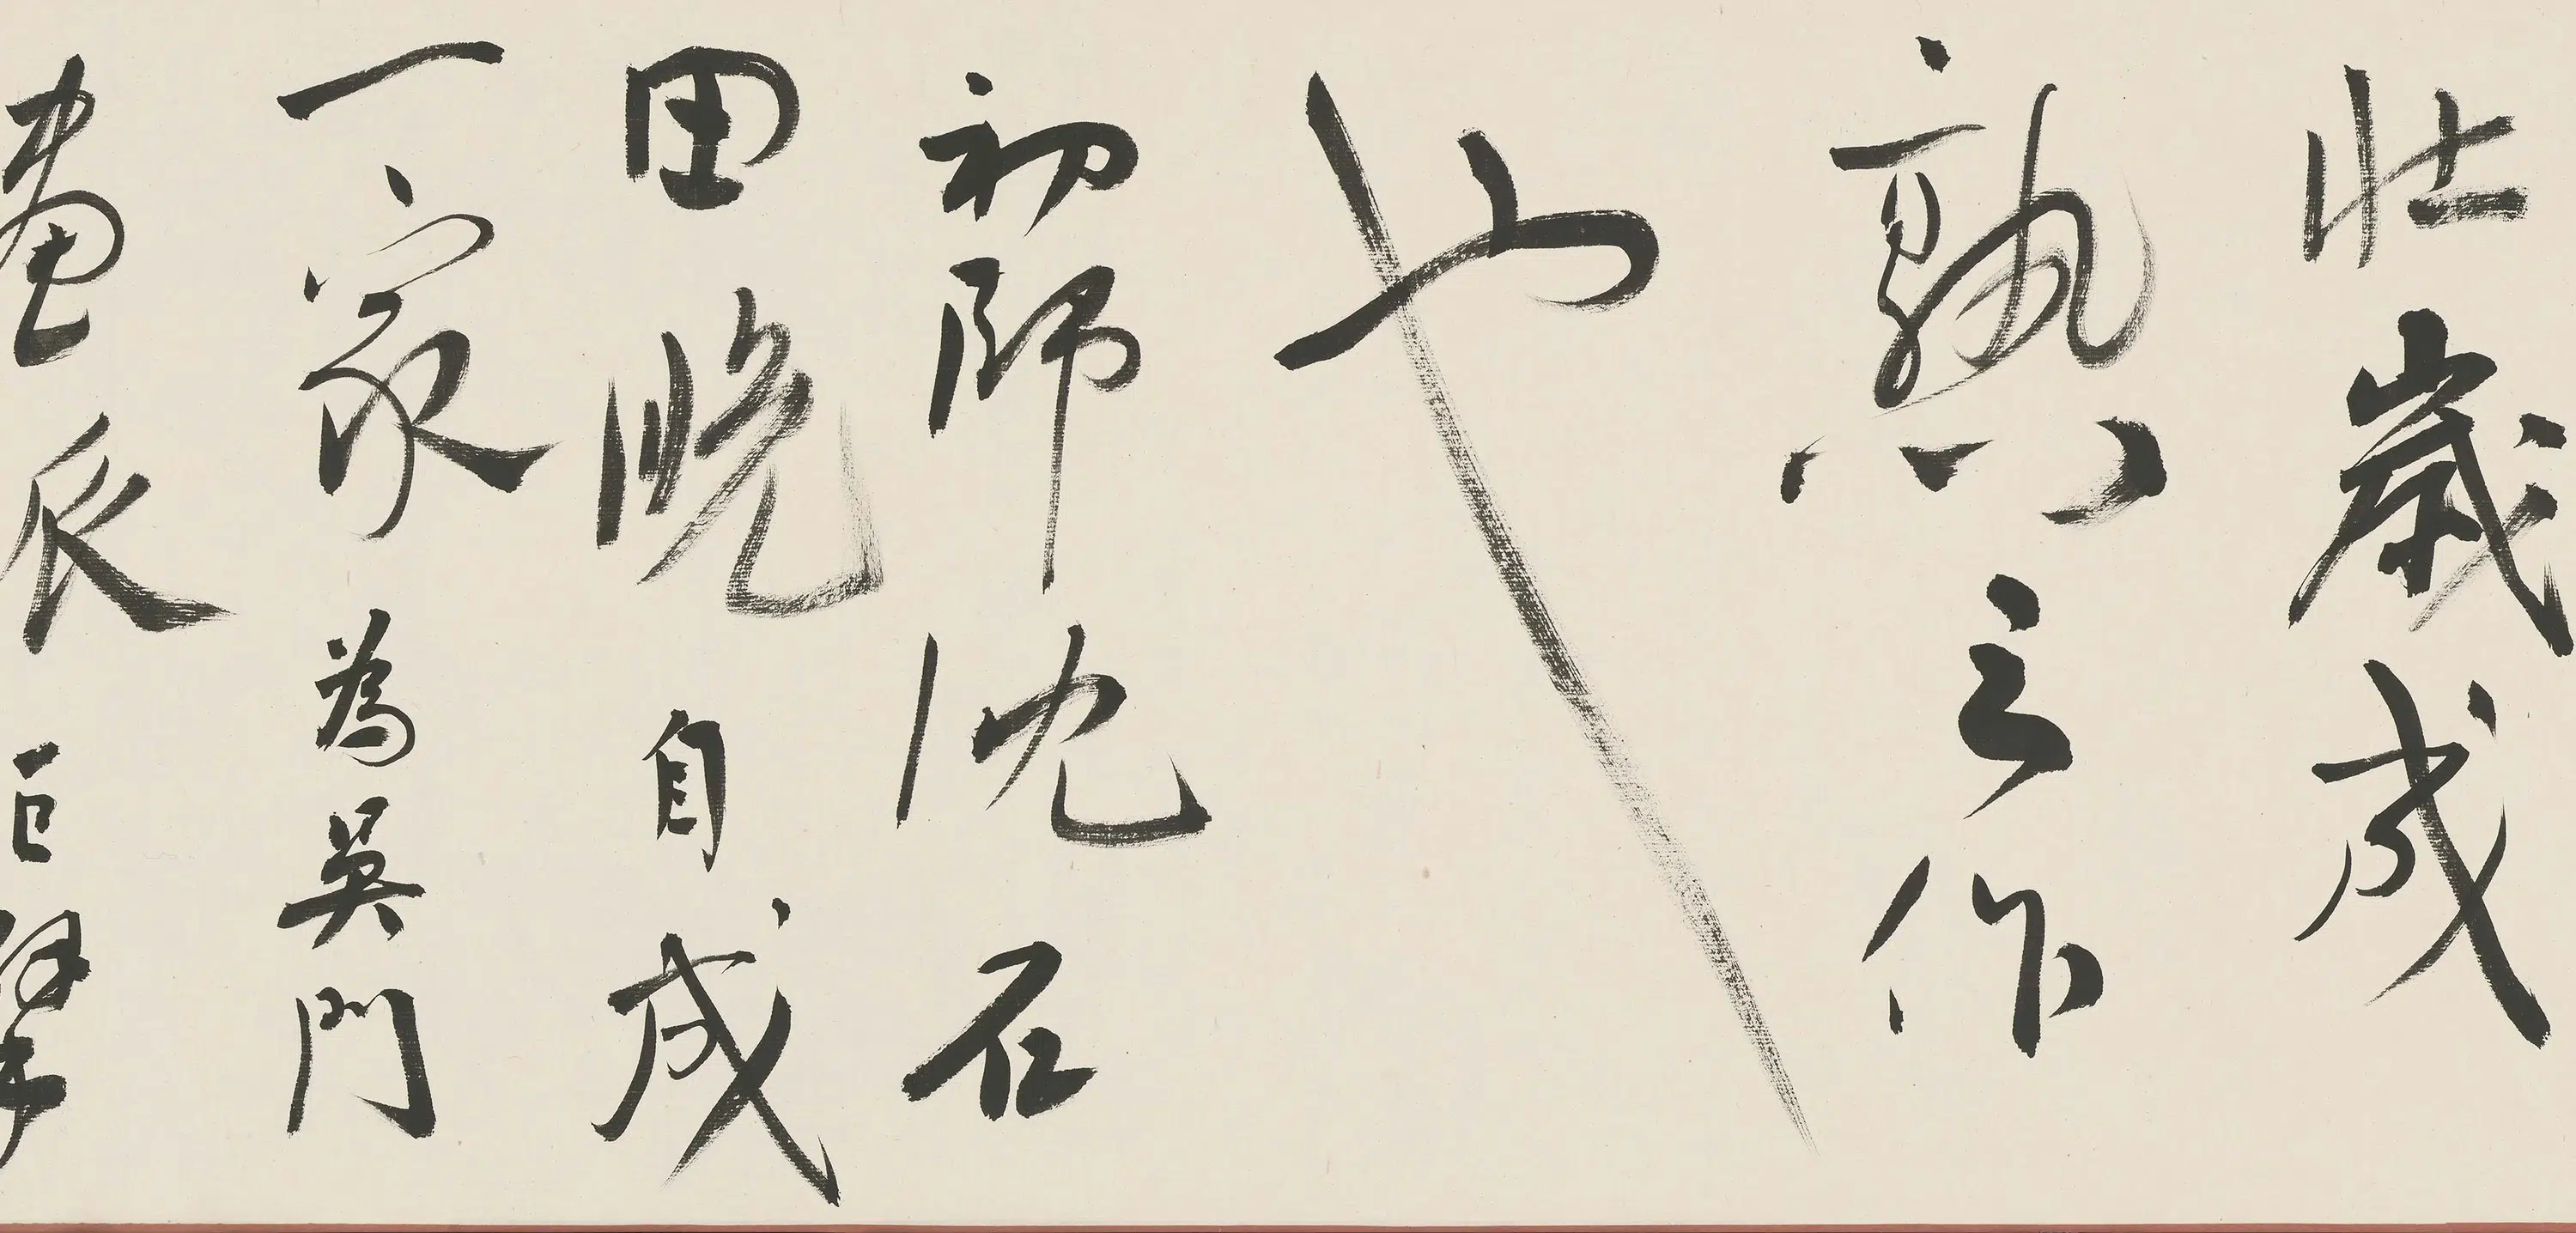 壯歲成
熟之作
也
初師沈石
田晚自成
一家為吳門
畫派巨擘